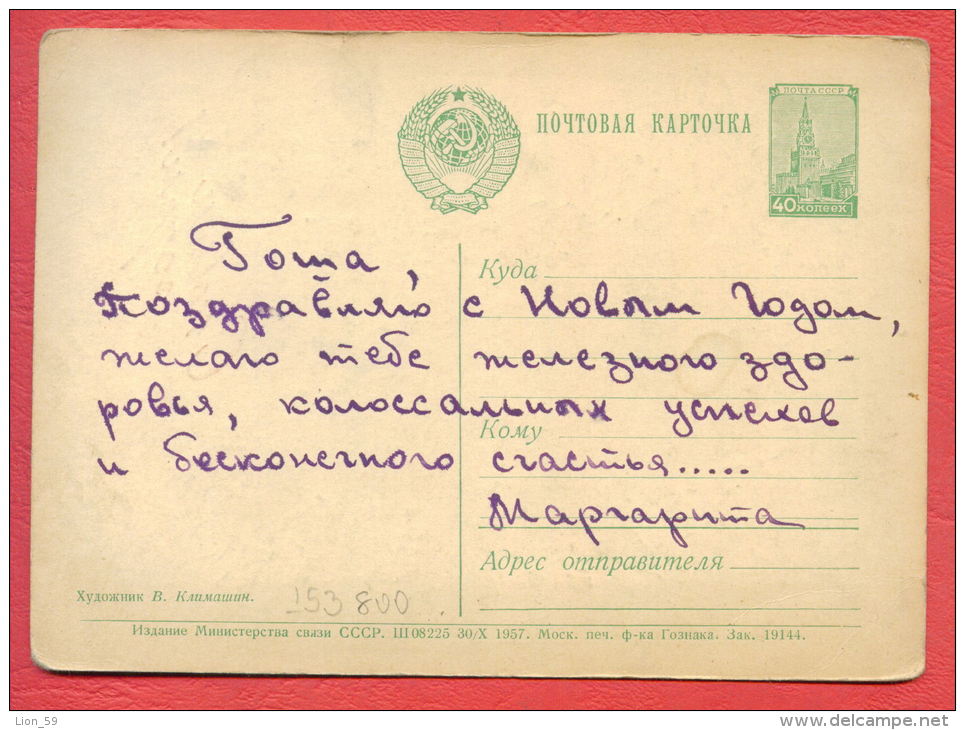 ПОЧТА СССР
ПОЧТОВАЯ КАРТОЧКА
40 копеек
Гоша,
Куда
Поздравляю с Новым Годом,
желаю тебе железного здо-
ровья, колоссальных успехов
Кому
и бесконечного счастья.....
Маргарита
Адрес отправителя
Художник В. Климашин.
153 800
Издание Министерства связи СССР. Ш 08225 30/X 1957. Моск. печ. ф-ка Гознака. Зак. 19144.
Lion_59
www.delcampe.net